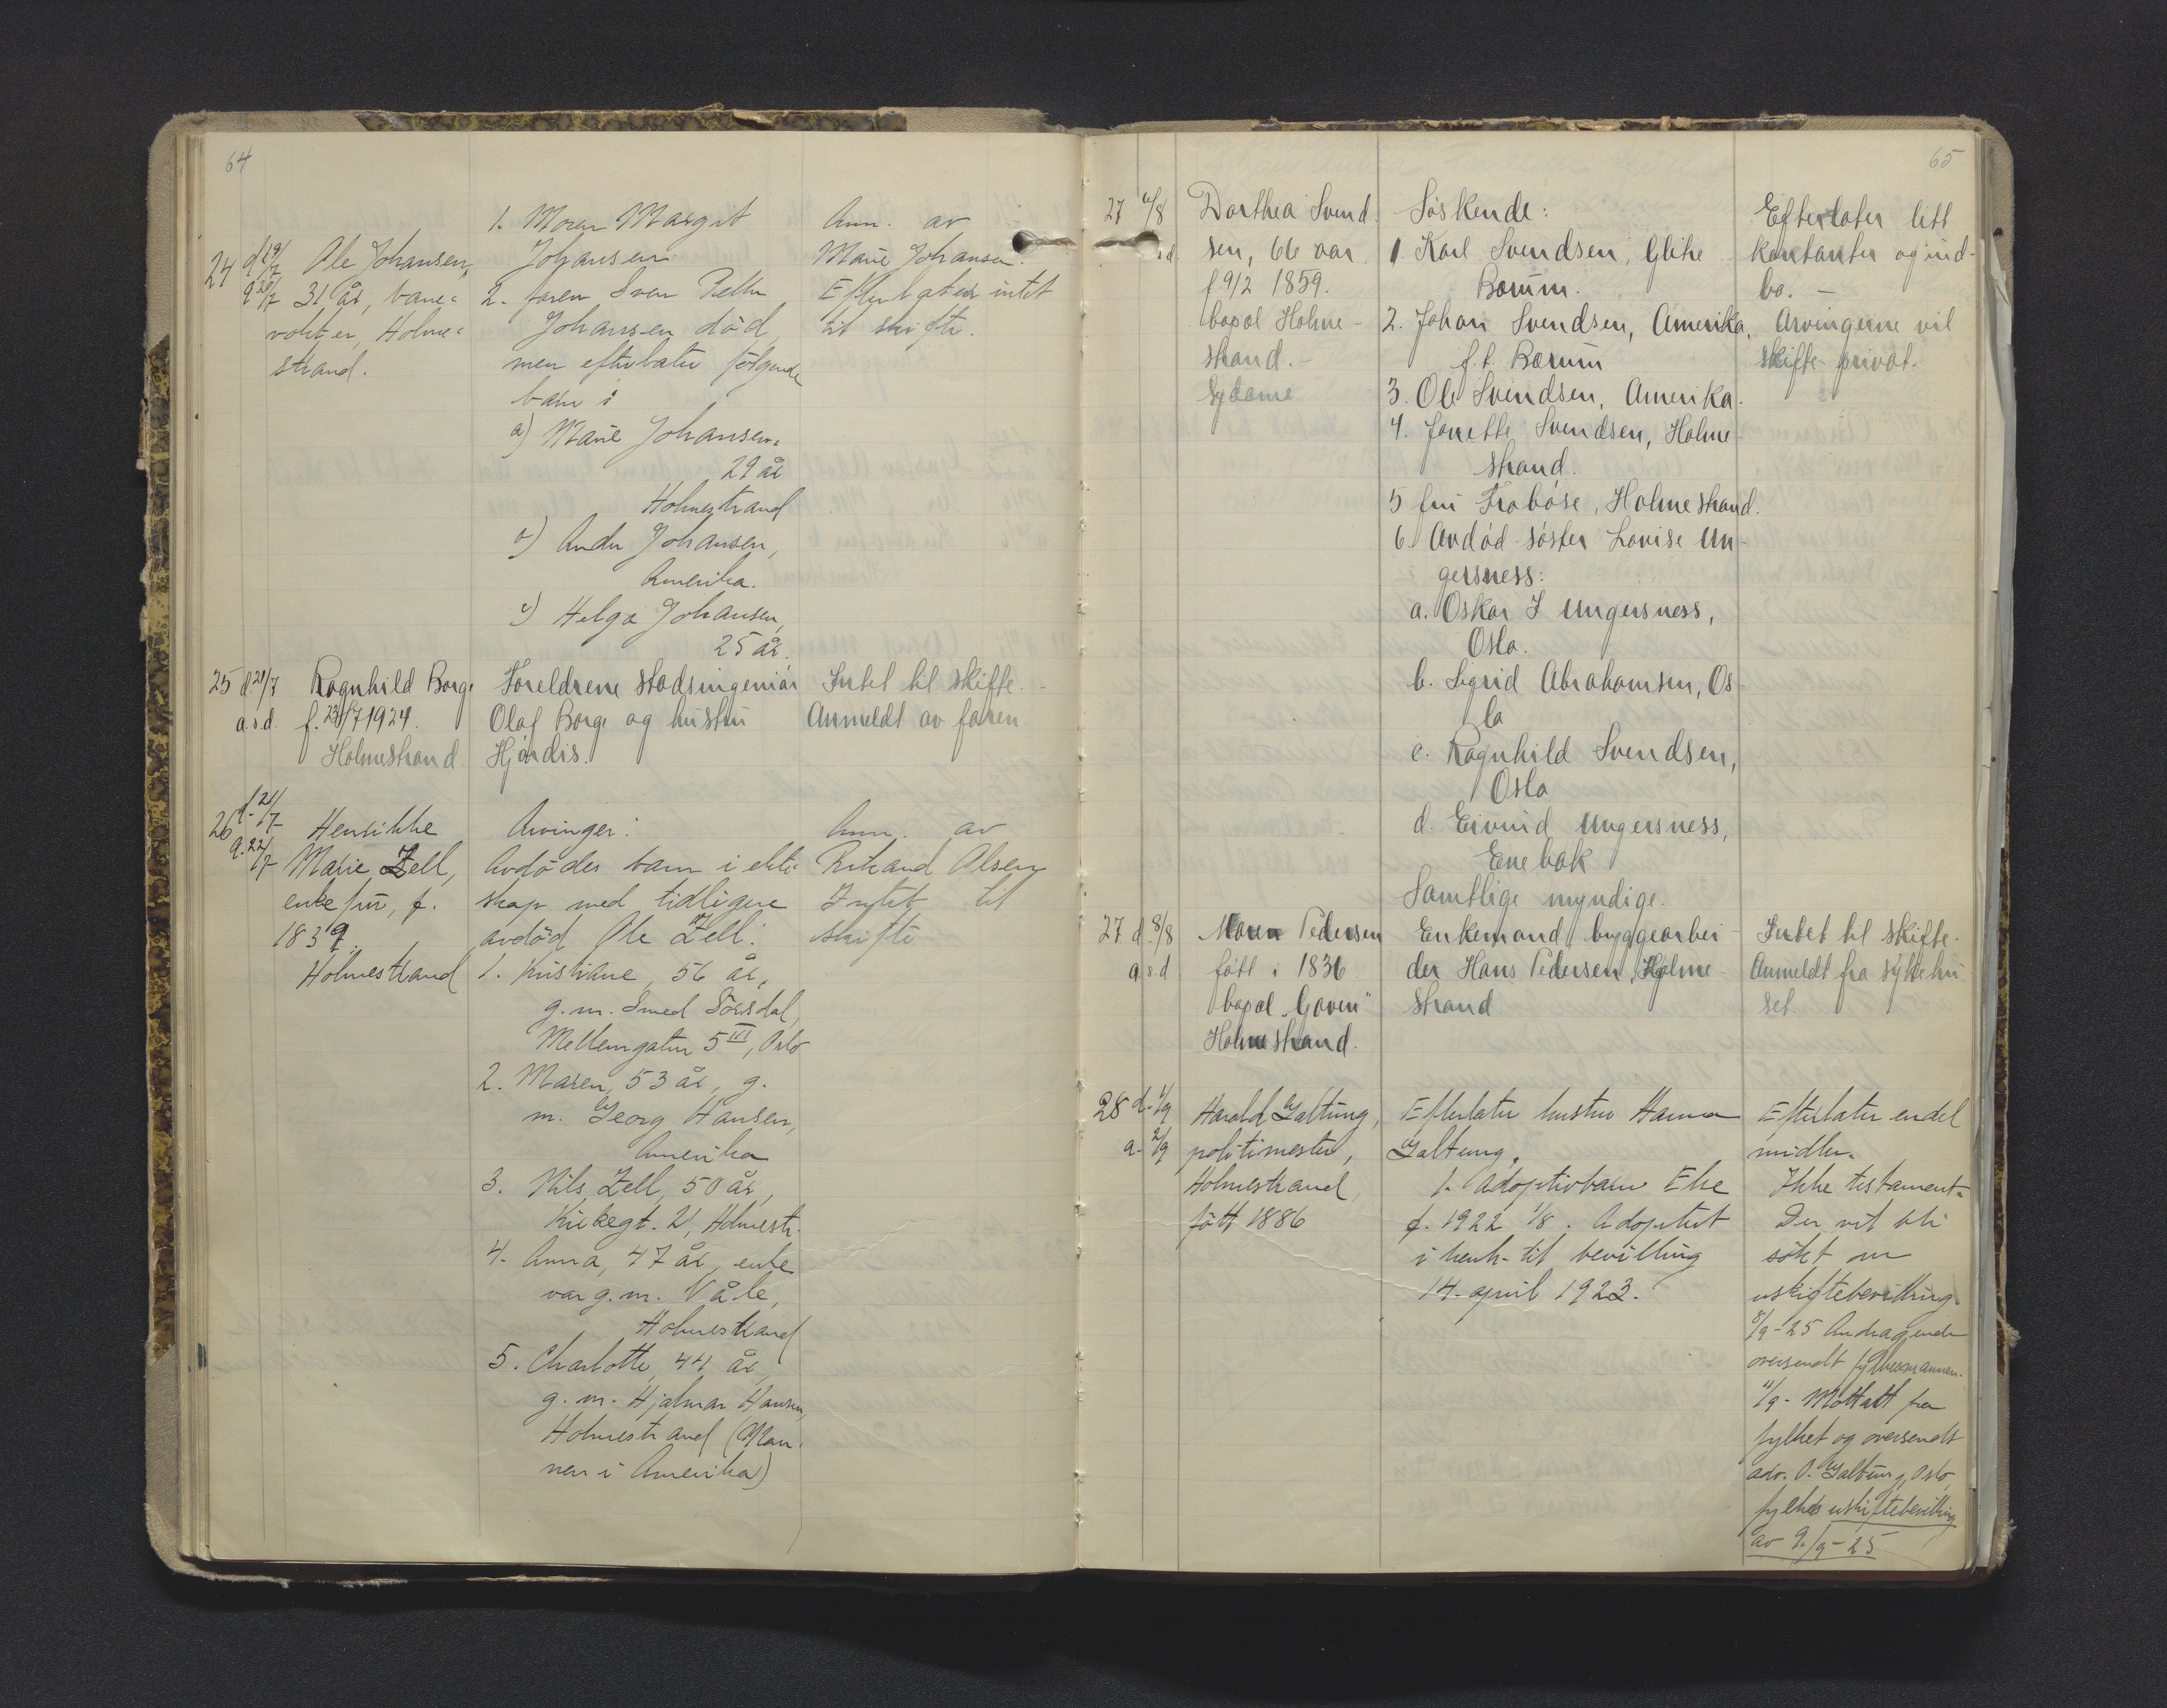 64
24 d 19/7 Ole Johansen,
a 20/7 31 år, bane-
vokter, Holme-
strand.
1. Moren Margit
Johansen
2. faren Sven
Johanssen död,
men efterlater följende
barn i
a) Marie Johansen.
29 år
Holmestrand
Johansen,
Amerika.
c) Helga Johansen,
25 år.
Ann. av
Marie Johansen.
Efterlater intet
til skifte.
25 d 21/7 Ragnhild Borge
a.s.d. f. 1924.
Holmestrand
Foreldrene stadsingeniør
Olaf Borge og hustru
Hjørdis.
Intet til skifte.
Anmeldt av faren
26 d. 21/7 Henrikke
a. 22/7 Marie Zell,
enkefru, f.
1839.
Holmestrand
Arvinger:
Avdødes barn i ekte-
skap med tidligere
avdöd Ole Zell:
1. Kristiane, 56 år,
g.m. Smed Sörsdal,
Mellemgaten 5 III, Oslo
2. Maren, 53 år, g.
m. Georg Hansen,
Amerika
3. Nils Zell, 50 år,
Kirkegt. 21, Holmestr.
4. Anna, 47 år, enke
var g.m. Våle,
Holmestrand
5. Charlotte, 44 år,
g.m. Hjalmar Hansen,
Holmestrand (Man-
nen i Amerika)
Ann. av
Rikard Olsen
Intet til
skifte
65
27 Dorthea Svend-
sen, 66 aar
f 9/2 1859.
bopæl Holme-
strand.-
Sydame
Søskende:
1. Karl Svendsen,
Bærum.
2. Johan Svendsen, Amerika,
f.t. Bærum
3. Ole Svendsen, Amerika.
4. Janette Svendsen, Holme-
strand.
5 fru Frobøse, Holmestrand.
6. Avdød søster Lovise Un-
gersness:
a. Oskar I Ungersness,
Oslo.
b. Sigrid Abrahamsen, Os-
lo
c. Ragnhild Svendsen,
Oslo
d. Eivind Ungersness,
Enebak
Samtlige myndige.
Efterlater litt
kontanter og ind-
bo. -
Arvingerne vil
skifte privat.
27 d. 8/8 Maren Pedersen
a s.d født i 1836
bopæl "Goven"
Holmestrand.
Enkemand, bryggearbei-
der Hans Pedersen, Holme-
strand
Intet til skifte.
Anmeldt fra sykehu-
set.
28 d. 1/9 Harald Galtung,
a. 2/9 politimester,
Holmestrand,
født 1886
Efterlater hustru Hanna
Galtung.
1. Adoptivbarn Else
f. 1922 1/8. Adoptert
i henh. til bevilling
14. april 1923.
Efterlater endel
midler.
Ikke testament.
Der vil bli
søkt om
uskiftebevilling.
8/9-25 Andragende
oversendt fylkesmannen.
11/9- Mottatt fra
fylket og oversendt
adv. O. Galtung, Oslo,
fylkets uskiftebevilling
av 9/9-25